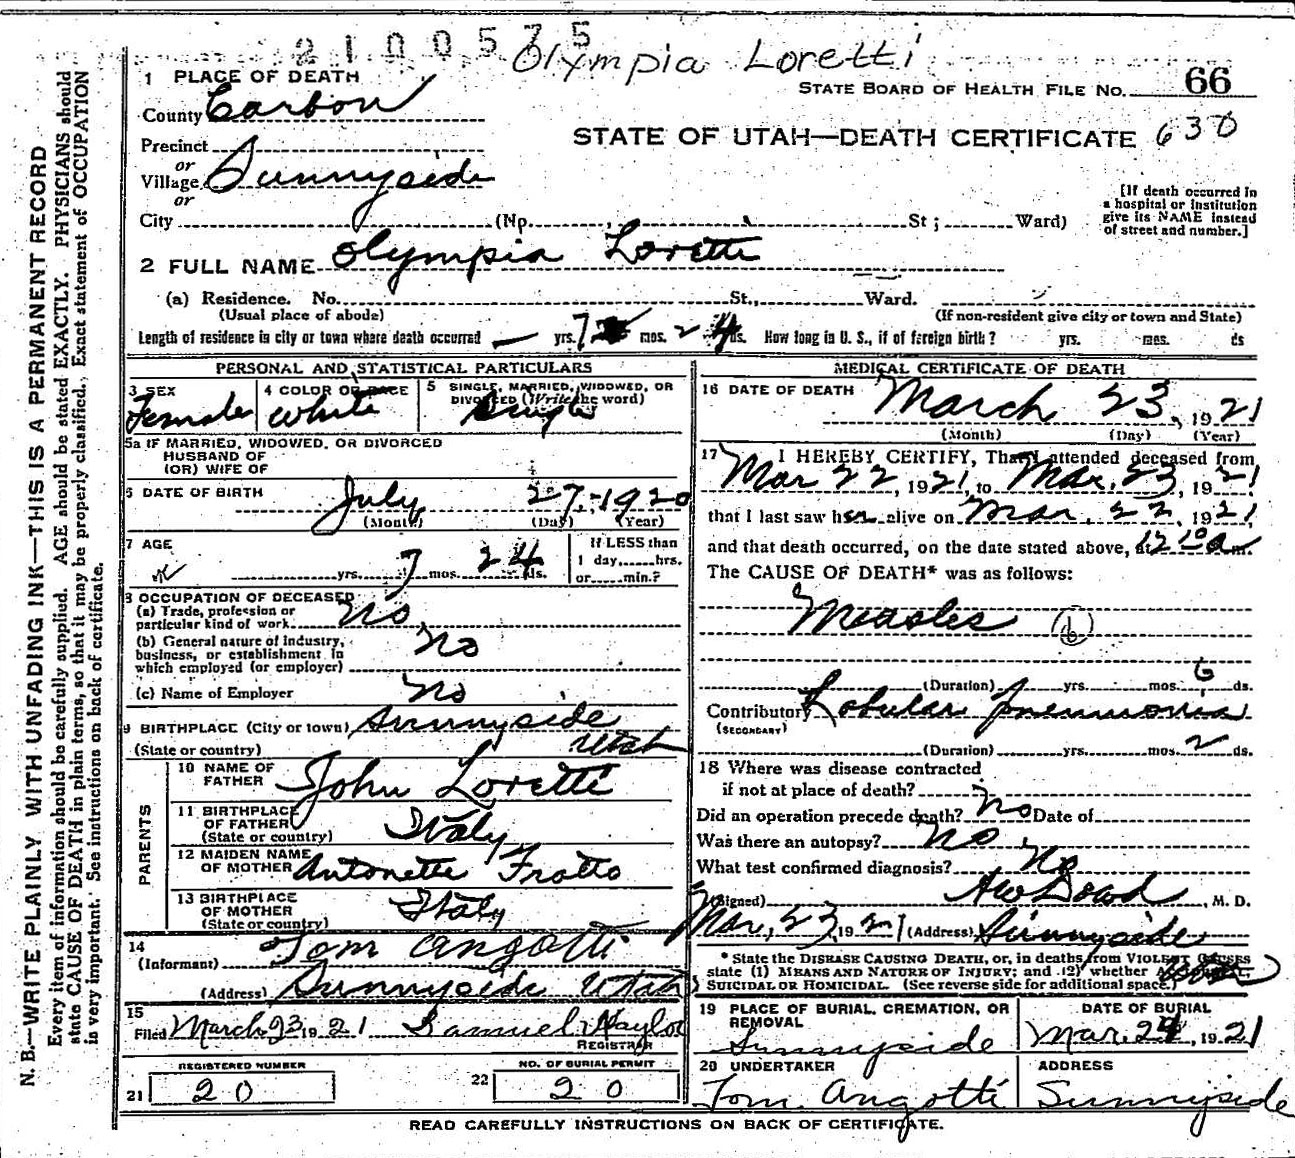 2100575
Olympia Loretti
1 PLACE OF DEATH
County Carbon
STATE BOARD OF HEALTH FILE NO. 66
STATE OF UTAH—DEATH CERTIFICATE 630
Precinct
or
Village Sunnyside
or
City (No. St; Ward)
[If death occurred in
a hospital or institution
give its NAME instead
of street and number.]
2 FULL NAME Olympia Loretti
(a) Residence. No. St., Ward.
(Usual place of abode) (If non-resident give city or town and State)
Length of residence in city or town where death occurred — yrs. 7 mos. 24 ds. How long in U. S., if of foreign birth? yrs. mos. ds
PERSONAL AND STATISTICAL PARTICULARS
3 SEX 4 COLOR OR RACE 5 SINGLE, MARRIED, WIDOWED, OR
DIVORCED (Write the word)
Female White Single
5a IF MARRIED, WIDOWED, OR DIVORCED
HUSBAND OF
(OR) WIFE OF
6 DATE OF BIRTH July 27-1920
(Month) (Day) (Year)
7 AGE
yrs. 7 mos. 24 ds.
If LESS than
1 day, hrs.
or min.?
8 OCCUPATION OF DECEASED
(a) Trade, profession or
particular kind of work No
(b) General nature of industry,
business, or establishment in
which employed (or employer) No
(c) Name of Employer No
9 BIRTHPLACE (City or town) Sunnyside
(State or country) Utah
PARENTS
10 NAME OF
FATHER John Loretti
11 BIRTHPLACE
OF FATHER
(State or country) Italy
12 MAIDEN NAME
OF MOTHER Antonette Frotto
13 BIRTHPLACE
OF MOTHER
(State or country) Italy
14
(Informant) Tom Angotti
(Address) Sunnyside Utah
15
Filed March 23 1921 Samuel Naylor
REGISTRAR
REGISTERED NUMBER NO. OF BURIAL PERMIT
21 20 22 20
MEDICAL CERTIFICATE OF DEATH
16 DATE OF DEATH March 23, 1921
(Month) (Day) (Year)
17 I HEREBY CERTIFY, That I attended deceased from
Mar 22, 1921, to Mar. 23, 1921
that I last saw her alive on Mar. 22, 1921,
and that death occurred, on the date stated above, at 12 10 a m.
The CAUSE OF DEATH* was as follows:
Measles (b)
(Duration) yrs. mos. 6 ds.
Contributory Lobular pneumonia
(SECONDARY)
(Duration) yrs. mos. 2 ds.
18 Where was disease contracted
if not at place of death?
Did an operation precede death? No Date of
Was there an autopsy? No
What test confirmed diagnosis? No
(Signed) A W Dowd, M. D.
Mar, 23, 1921 (Address) Sunnyside
* State the DISEASE CAUSING DEATH, or, in deaths from VIOLENT CAUSES
state (1) MEANS AND NATURE OF INJURY; and (2) whether
SUICIDAL OR HOMICIDAL. (See reverse side for additional space.)
19 PLACE OF BURIAL, CREMATION, OR
REMOVAL
Sunnyside
DATE OF BURIAL
Mar. 24, 1921
20 UNDERTAKER ADDRESS
Tom Angotti Sunnyside
READ CAREFULLY INSTRUCTIONS ON BACK OF CERTIFICATE.
N. B.—WRITE PLAINLY WITH UNFADING INK—THIS IS A PERMANENT RECORD
Every item of information should be carefully supplied. AGE should be stated EXACTLY. PHYSICIANS should
state CAUSE OF DEATH in plain terms, so that it may be properly classified. Exact statement of OCCUPATION
is very important. See instructions on back of certificate.